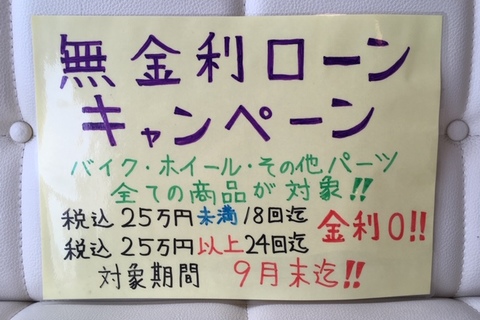 無金利ローン
キャンペーン
バイク・ホイール・その他パーツ
全ての商品が対象!!
税込25万円未満18回迄
税込25万円以上24回迄
金利0!!
対象期間 9月末迄!!